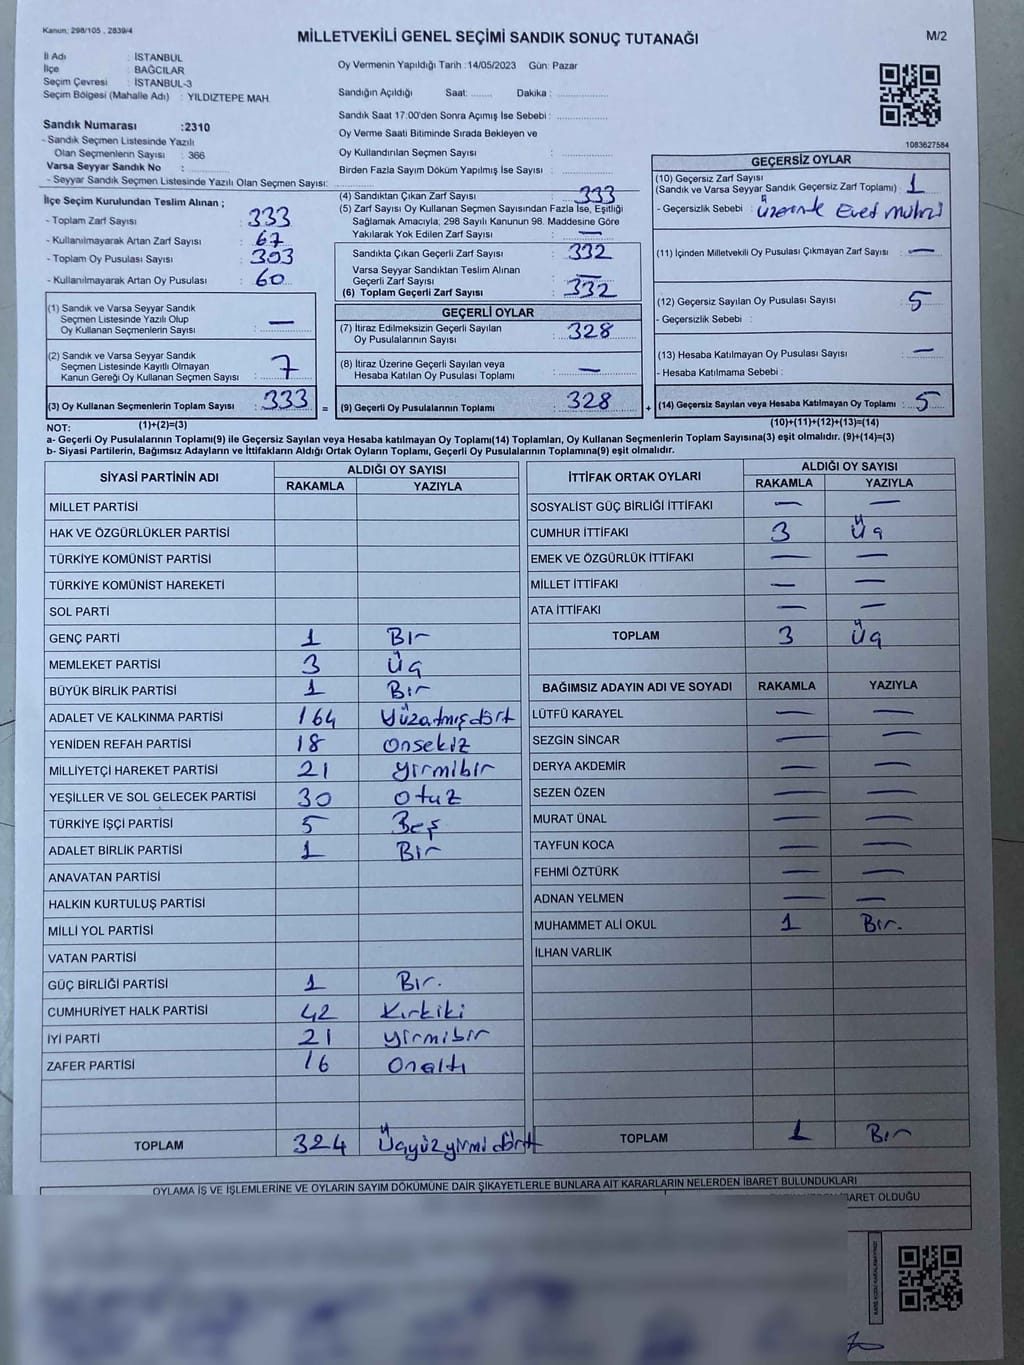 Kanun: 298/105 , 2839/4
MİLLETVEKİLİ GENEL SEÇİMİ SANDIK SONUÇ TUTANAĞI
M/2
İl Adı : İSTANBUL
İlçe : BAĞCILAR
Seçim Çevresi : İSTANBUL-3
Seçim Bölgesi (Mahalle Adı) : YILDIZTEPE MAH.
Sandık Numarası :2310
- Sandık Seçmen Listesinde Yazılı
Olan Seçmenlerin Sayısı : 366
Varsa Seyyar Sandık No :
- Seyyar Sandık Seçmen Listesinde Yazılı Olan Seçmen Sayısı:
Oy Vermenin Yapıldığı Tarih :14/05/2023 Gün: Pazar
Sandığın Açıldığı Saat: Dakika :
Sandık Saat 17:00'den Sonra Açımış İse Sebebi :
Oy Verme Saati Bitiminde Sırada Bekleyen ve
Oy Kullandırılan Seçmen Sayısı :
Birden Fazla Sayım Döküm Yapılmış İse Sayısı :
1083627584
İlçe Seçim Kurulundan Teslim Alınan ;
- Toplam Zarf Sayısı : 333
- Kullanılmayarak Artan Zarf Sayısı : 67
- Toplam Oy Pusulası Sayısı : 393
- Kullanılmayarak Artan Oy Pusulası : 60
(1) Sandık ve Varsa Seyyar Sandık
Seçmen Listesinde Yazılı Olup
Oy Kullanan Seçmenlerin Sayısı : —
(2) Sandık ve Varsa Seyyar Sandık
Seçmen Listesinde Kayıtlı Olmayan
Kanun Gereği Oy Kullanan Seçmen Sayısı : 7
(3) Oy Kullanan Seçmenlerin Toplam Sayısı : 333 =
(4) Sandıktan Çıkan Zarf Sayısı : 333
(5) Zarf Sayısı Oy Kullanan Seçmen Sayısından Fazla İse, Eşitliği
Sağlamak Amacıyla, 298 Sayılı Kanunun 98. Maddesine Göre
Yakılarak Yok Edilen Zarf Sayısı : —
Sandıkta Çıkan Geçerli Zarf Sayısı : 332
Varsa Seyyar Sandıktan Teslim Alınan
Geçerli Zarf Sayısı : —
(6) Toplam Geçerli Zarf Sayısı : 332
GEÇERLİ OYLAR
(7) İtiraz Edilmeksizin Geçerli Sayılan
Oy Pusulalarının Sayısı : 328
(8) İtiraz Üzerine Geçerli Sayılan veya
Hesaba Katılan Oy Pusulası Toplamı : —
(9) Geçerli Oy Pusulalarının Toplamı : 328 +
GEÇERSİZ OYLAR
(10) Geçersiz Zarf Sayısı
(Sandık ve Varsa Seyyar Sandık Geçersiz Zarf Toplamı) : 1
- Geçersizlik Sebebi : üzerinde Evet mührü
(11) İçinden Milletvekili Oy Pusulası Çıkmayan Zarf Sayısı : —
(12) Geçersiz Sayılan Oy Pusulası Sayısı : 5
- Geçersizlik Sebebi :
(13) Hesaba Katılmayan Oy Pusulası Sayısı : —
- Hesaba Katılmama Sebebi :
(14) Geçersiz Sayılan veya Hesaba Katılmayan Oy Toplamı : 5
NOT: (1)+(2)=(3) (10)+(11)+(12)+(13)=(14)
a- Geçerli Oy Pusulalarının Toplamı(9) ile Geçersiz Sayılan veya Hesaba katılmayan Oy Toplamı(14) Toplamları, Oy Kullanan Seçmenlerin Toplam Sayısına(3) eşit olmalıdır. (9)+(14)=(3)
b- Siyasi Partilerin, Bağımsız Adayların ve İttifakların Aldığı Ortak Oyların Toplamı, Geçerli Oy Pusulalarının Toplamına(9) eşit olmalıdır.
SİYASİ PARTİNİN ADI ALDIĞI OY SAYISI
RAKAMLA YAZIYLA
MİLLET PARTİSİ
HAK VE ÖZGÜRLÜKLER PARTİSİ
TÜRKİYE KOMÜNİST PARTİSİ
TÜRKİYE KOMÜNİST HAREKETİ
SOL PARTİ
GENÇ PARTİ 1 Bir
MEMLEKET PARTİSİ 3 Üç
BÜYÜK BİRLİK PARTİSİ 1 Bir
ADALET VE KALKINMA PARTİSİ 164 Yüzatmışdört
YENİDEN REFAH PARTİSİ 18 onsekiz
MİLLİYETÇİ HAREKET PARTİSİ 21 yirmibir
YEŞİLLER VE SOL GELECEK PARTİSİ 30 otuz
TÜRKİYE İŞÇİ PARTİSİ 5 Beş
ADALET BİRLİK PARTİSİ 1 Bir
ANAVATAN PARTİSİ
HALKIN KURTULUŞ PARTİSİ
MİLLİ YOL PARTİSİ
VATAN PARTİSİ
GÜÇ BİRLİĞİ PARTİSİ 1 Bir.
CUMHURİYET HALK PARTİSİ 42 Kırkiki
İYİ PARTİ 21 yirmibir
ZAFER PARTİSİ 16 Onaltı
TOPLAM 324 Üçyüzyirmidört
İTTİFAK ORTAK OYLARI ALDIĞI OY SAYISI
RAKAMLA YAZIYLA
SOSYALİST GÜÇ BİRLİĞİ İTTİFAKI — —
CUMHUR İTTİFAKI 3 Üç
EMEK VE ÖZGÜRLÜK İTTİFAKI — —
MİLLET İTTİFAKI — —
ATA İTTİFAKI — —
TOPLAM 3 Üç
BAĞIMSIZ ADAYIN ADI VE SOYADI RAKAMLA YAZIYLA
LÜTFÜ KARAYEL — —
SEZGİN SİNCAR — —
DERYA AKDEMİR — —
SEZEN ÖZEN — —
MURAT ÜNAL — —
TAYFUN KOCA — —
FEHMİ ÖZTÜRK — —
ADNAN YELMEN — —
MUHAMMET ALİ OKUL 1 Bir.
İLHAN VARLIK
TOPLAM 1 Bir
OYLAMA İŞ VE İŞLEMLERİNE VE OYLARIN SAYIM DÖKÜMÜNE DAİR ŞİKAYETLERLE BUNLARA AİT KARARLARIN NELERDEN İBARET BULUNDUKLARI
İBARET OLDUĞU